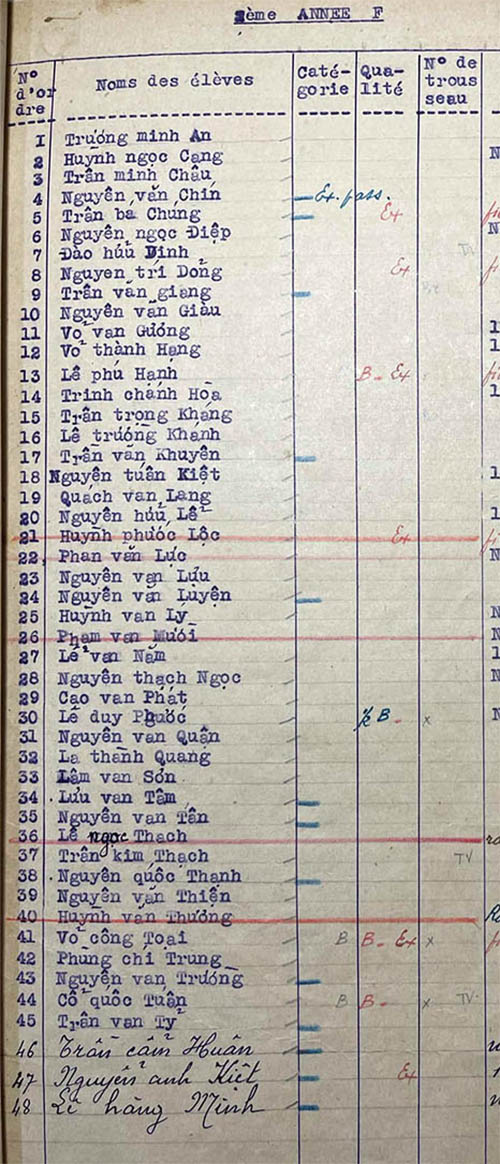 2ème ANNEE F
N° d'or dre Noms des élèves Caté- gorie Qua- lité N° de trous seau
1 Trương minh An
2 Huỳnh ngọc Cang
3 Trần minh Châu
4 Nguyễn văn Chín Ex. pass.
5 Trần ba Chúng Ex
6 Nguyễn ngọc Điệp
7 Đào hữu Dinh TV
8 Nguyen tri Dông Ex
9 Trần văn giang
10 Nguyễn văn Giàu
11 Võ van Gương
12 Võ thành Hạng
13 Lê phú Hạnh B - Ex
14 Trinh chánh Hòa
15 Trần trọng Kháng
16 Lê trường Khánh
17 Trần văn Khuyên
18 Nguyễn tuân Kiệt
19 Quách van Lang
20 Nguyễn hữu Lễ
21 Huỳnh phước Lộc Ex
22 Phan văn Lực
23 Nguyễn vạn Lưu
24 Nguyễn văn Luyện
25 Huỳnh van Lý
26 Phạm van Mười
27 Lê van Năm
28 Nguyễn thạch Ngọc
29 Cao van Phát
30 Lê duy Phước B - x
31 Nguyễn van Quân
32 La thành Quang
33 Lâm van Sơn
34 Lưu van Tâm
35 Nguyễn van Tân
36 Lê ngọc Thạch
37 Trần kim Thạch TV
38 Nguyễn quốc Thanh
39 Nguyễn văn Thiện
40 Huỳnh văn Thương
41 Võ công Toại B B - Ex x
42 Phung chi Trung
43 Nguyễn van Trường
44 Cổ quốc Tuân B B - x TV
45 Trần van Tỷ
46 Trần cẩm Huân
47 Nguyễn anh Kiệt Ex
48 Lê hàng Minh